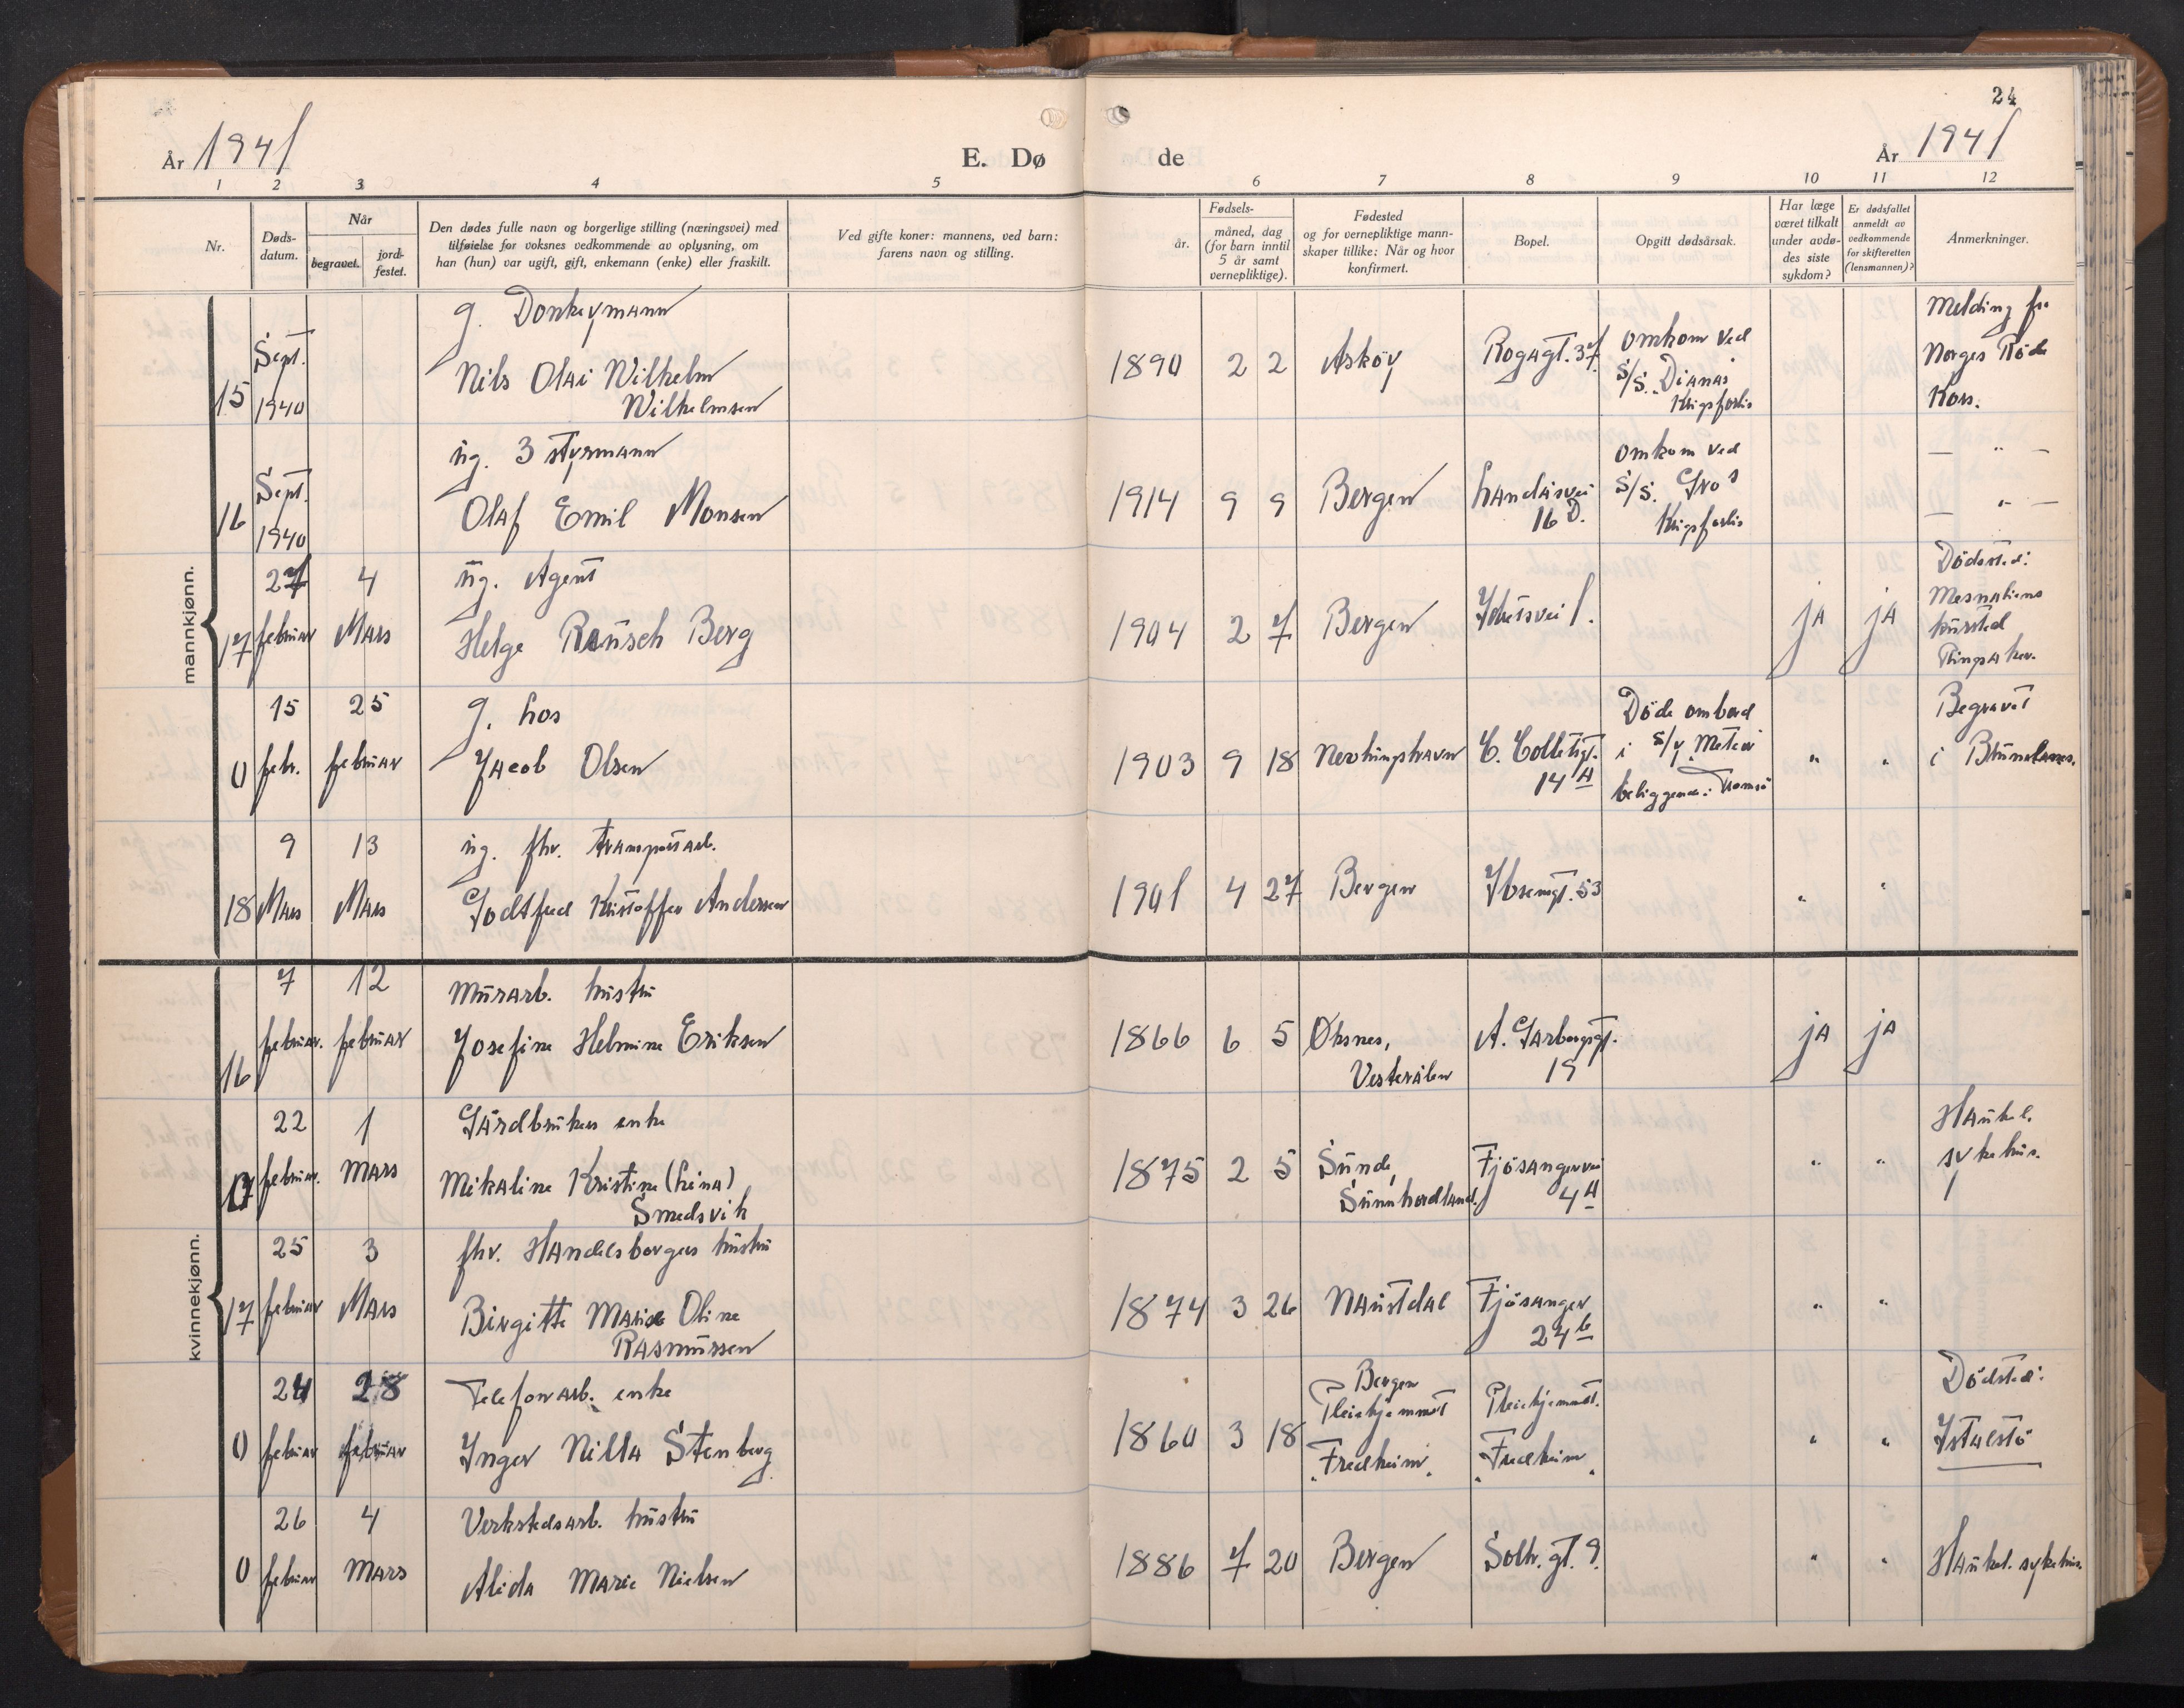 24
År 1941
E. Dø de
År 1941
1 2 3 4 5 6 7 8 9 10 11 12
Nr.
Døds-
datum.
Når
begravet.
jord-
festet.
Den dødes fulle navn og borgerlige stilling (næringsvei) med
tilføielse for voksnes vedkommende av oplysning, om
han (hun) var ugift, gift, enkemann (enke) eller fraskilt.
Ved gifte koner: mannens, ved barn:
farens navn og stilling.
Fødsels-
år.
måned, dag
(for barn inntil
5 år samt
vernepliktige).
Fødested
og for vernepliktige mann-
skaper tillike: Når og hvor
konfirmert.
Bopel.
Opgitt dødsårsak.
Har læge
været tilkalt
under avdø-
des siste
sykdom?
Er dødsfallet
anmeldt av
vedkommende
for skifteretten
(lensmannen)?
Anmerkninger.
mannkjønn.
15
Sept.
1940
g. Donkeymann
Nils Olai Wilhelm
Wilhelmsen
1890 2 2
Askøy
Rogagt. 37.
omkom ved
S/S. "Dianas"
Krigsforlis
Melding fra
Norges Røde
Kors.
16
Sept.
1940
ug. 3 styrmann
Olaf Emil Monsen
1914 9 9
Bergen
Landåsvei
16 D.
omkom ved
S/S. Gros
Krigsforlis
— " —
— " —
17
27 4
februar Mars
ug. Agent
Helge Rausch Berg
1904 2 7
Bergen
Idretsvei 1.
ja ja
Dødssted:
Mesnaliens
kursted
Ringsaker.
0
15 25
febr. februar
g. Los
Jacob Olsen
1903 9 18
C. Colletsgt.
14 A
Døde ombord
i S/y. Meteor
beliggende i Tromsø
" "
Begravet
i
18
9 13
Mars Mars
ug. fhv. transportarb.
Godtfred Kristoffer Andersen
1901 4 27
Bergen
Ibsensgt. 53
" "
kvinnekjønn.
16
7 12
februar. februar
Murarb. hustru
Josefine Helmine Eriksen
1866 6 5
Øksnes,
Vesterålen
A. Garborgsgt.
19
ja ja
0
22 1
februar. Mars
Gårdbrukers enke
Mikaline Kristine (Lina)
Smedsvik
1875 2 5
Sunde,
Sunnhordland.
Fjøsangervei
4 A
" "
Haukel.
sykehus.
17
25 3
februar Mars
fhv. Handelsborgers hustru
Birgitte Marie Oline
Rasmussen
1874 3 26
Naustdal
Fjøsanger
24 b
" "
0
24 28
februar februar
Telefonarb. enke
Inger Nilla Stenberg
1860 3 18
Bergen
Pleiehjemmet
"Fredheim".
Pleiehjemmet.
"Fredheim".
" "
Dødssted:
Ystalstø
0
26 4
februar Mars
Verkstedsarb. hustru
Alida Marie Nielsen
1886 7 20
Bergen
Solhr. gt. 9.
" "
Haukel. sykehus.